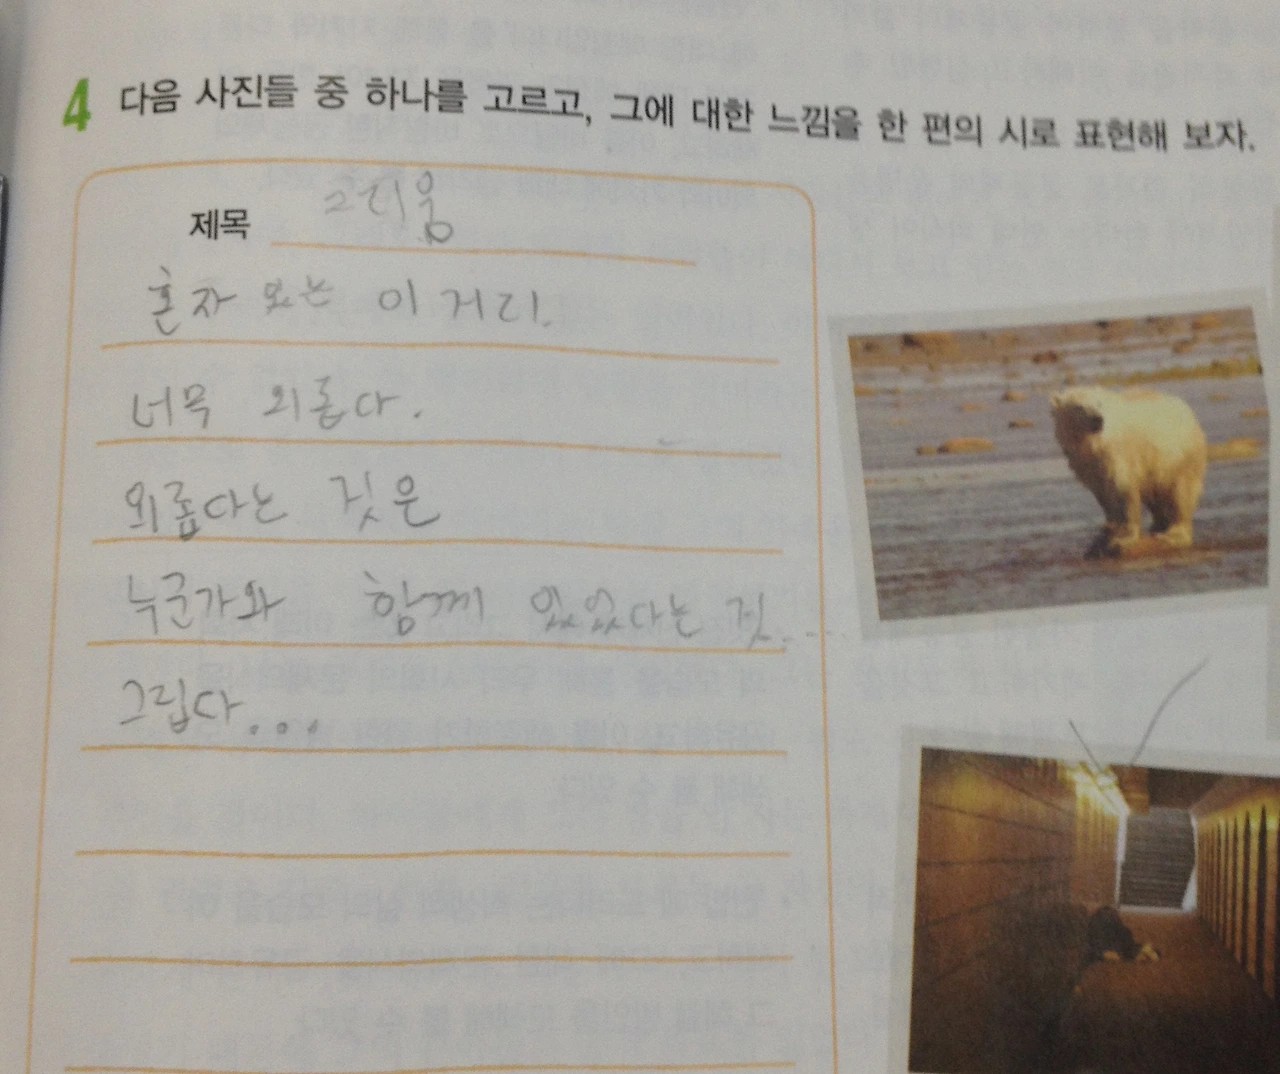 4 다음 사진들 중 하나를 고르고, 그에 대한 느낌을 한 편의 시로 표현해 보자.
제목 그리움
혼자 있는 이 거리.
너무 외롭다.
외롭다는 것은
누군가와 함께 있었다는 것....
그립다...